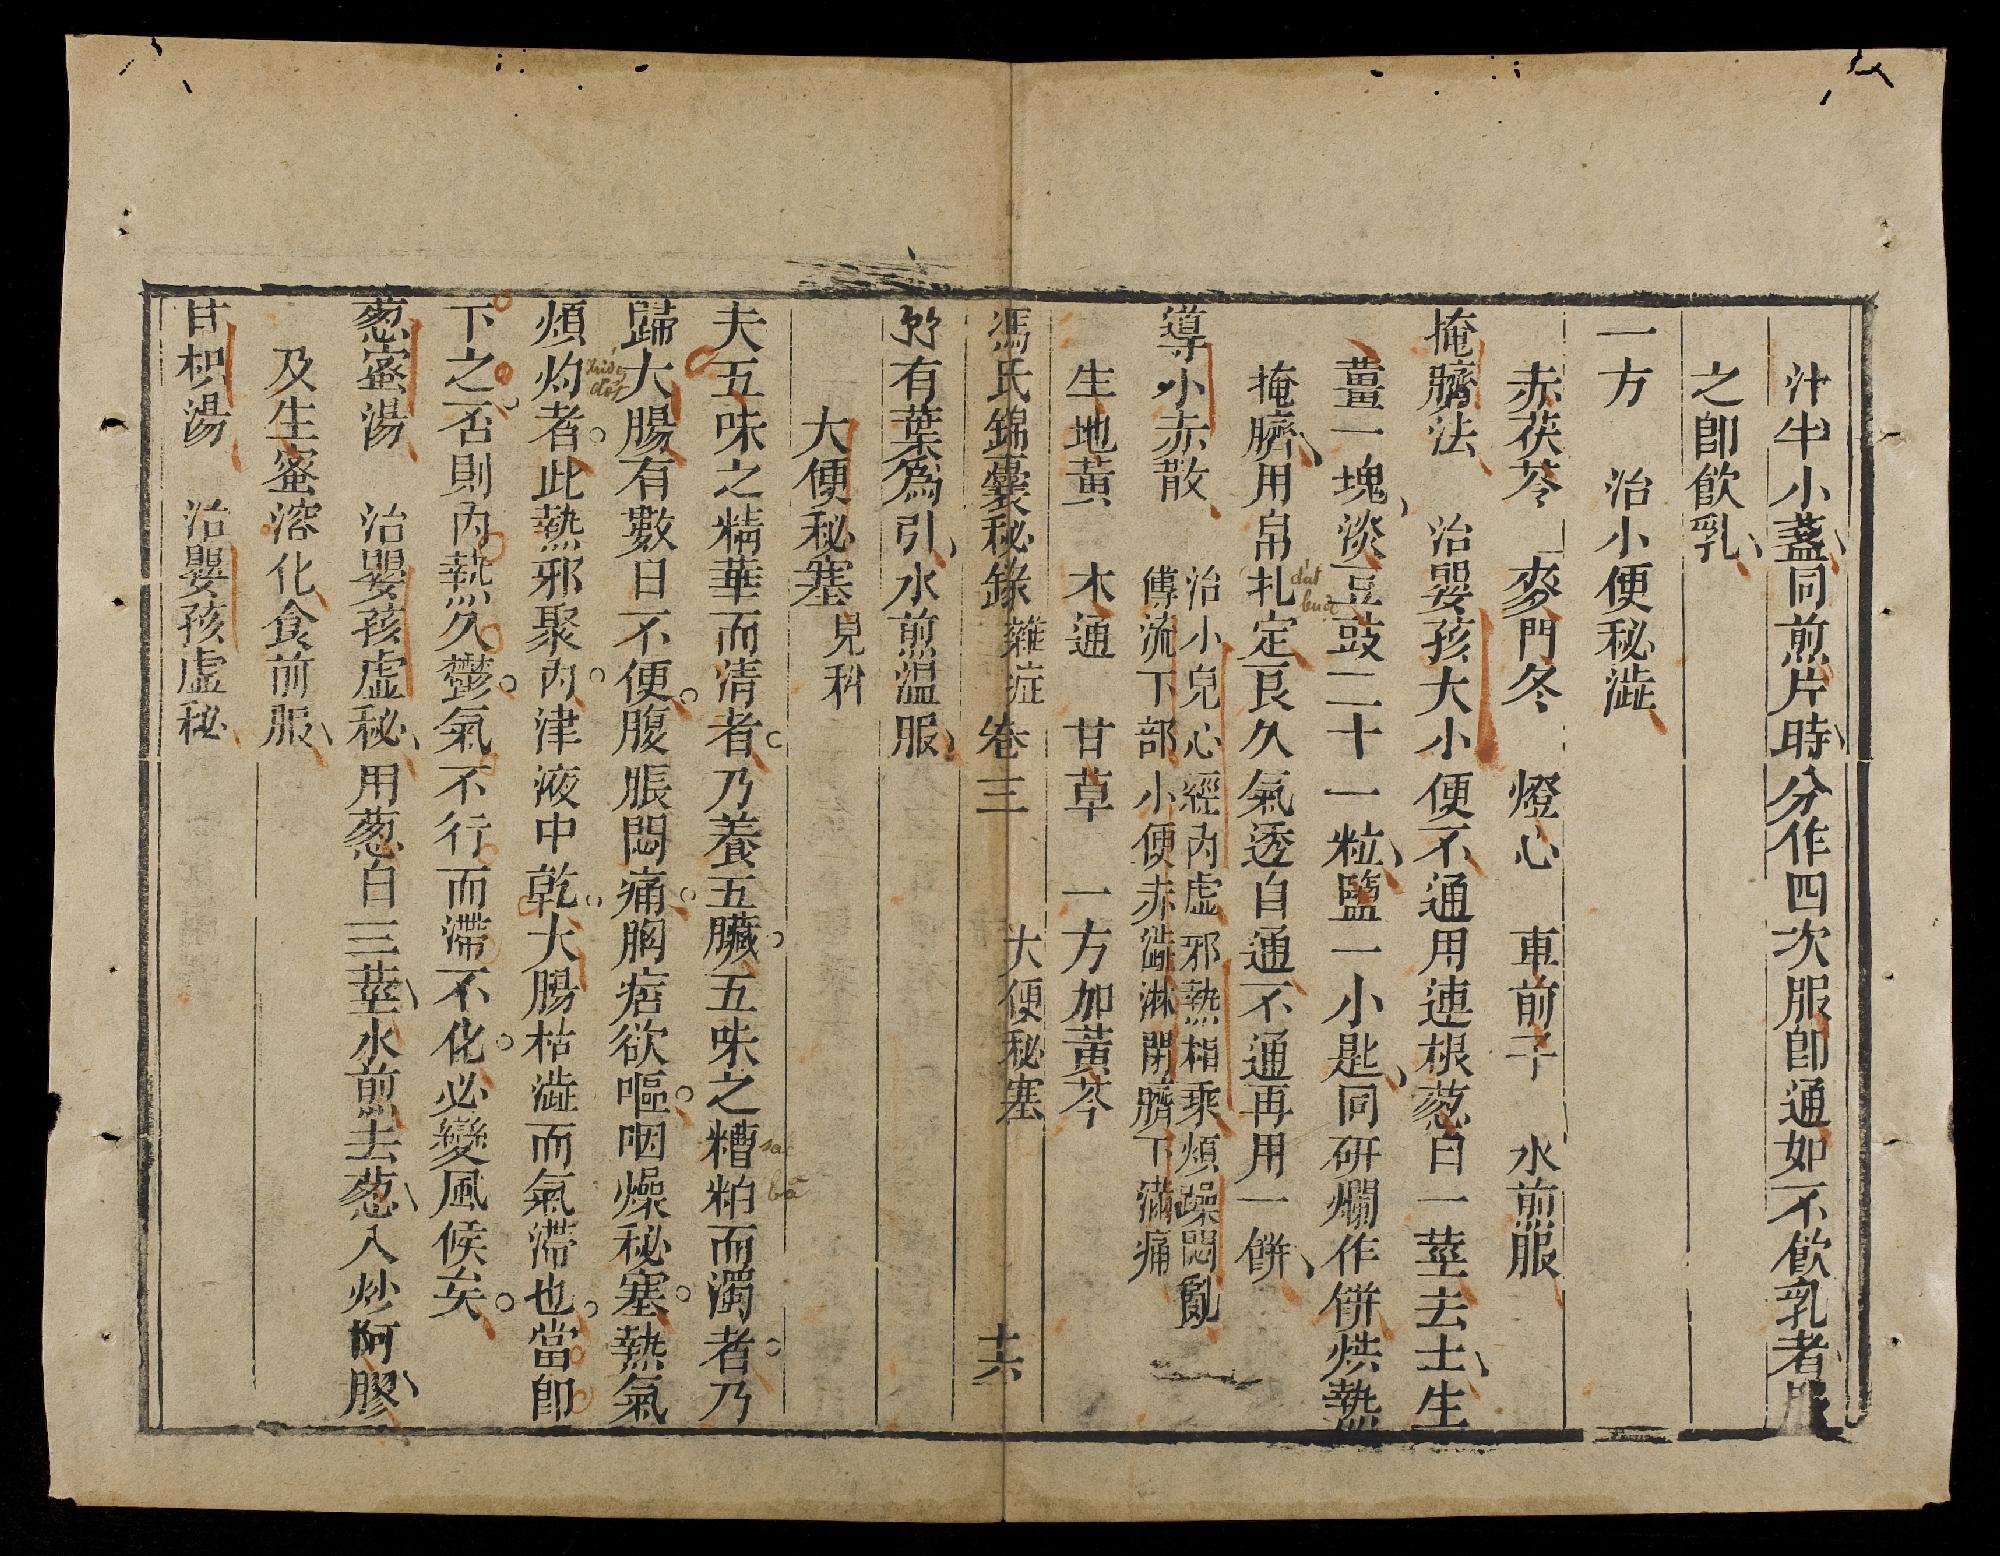 汁牛小盞同煎片時分作四次服卽通如不飮乳者服
之卽飮乳
一方　治小便秘澁
赤茯苓　麥門冬　燈心　車前子　水煎服
掩臍法　治嬰孩大小便不通用連根葱白一莖去土生
薑一塊淡豆豉二十一粒鹽一小匙同硏爛作餠烘熱
掩臍用帛扎定良久氣透自通不通再用一餠
đắt buộc
導小赤散　治小兒心經內虛邪熱相乘煩躁悶亂
傳流下部小便赤澁淋閉臍下滿痛
生地黃　木通　甘草　一方加黃芩
馮氏錦囊秘錄　雜症　卷三　大便秘塞　十六
竹葉爲引水煎温服
大便秘塞　兒科
夫五味之精華而清者乃養五臟五味之糟粕而濁者乃
bã
歸大腸有數日不便腹脹悶痛胸痞欲嘔咽燥秘塞熱氣
煩灼者此熱邪聚內津液中乾大腸枯澁而氣滯也當卽
đốt
下之否則內熱久鬱氣不行而滯不化必變風候矣
葱蜜湯　治嬰孩虛秘用葱白三莖水煎去葱入炒阿膠
及生蜜溶化食前服
甘枳湯　治嬰孩虛秘